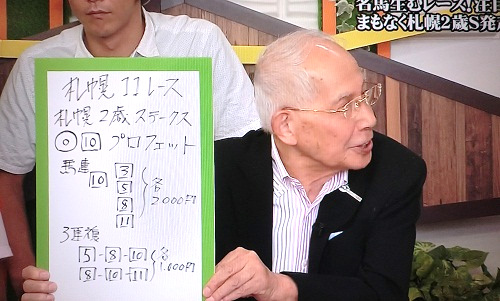 名馬生むレース!注目
まもなく札幌2歳S発走
札幌11レース
札幌2歳ステークス
◎ 10 プロフェット
馬連
10 3 5 8 11 各2,000円
3連複
5-8-10
8-10-11 各1,000円